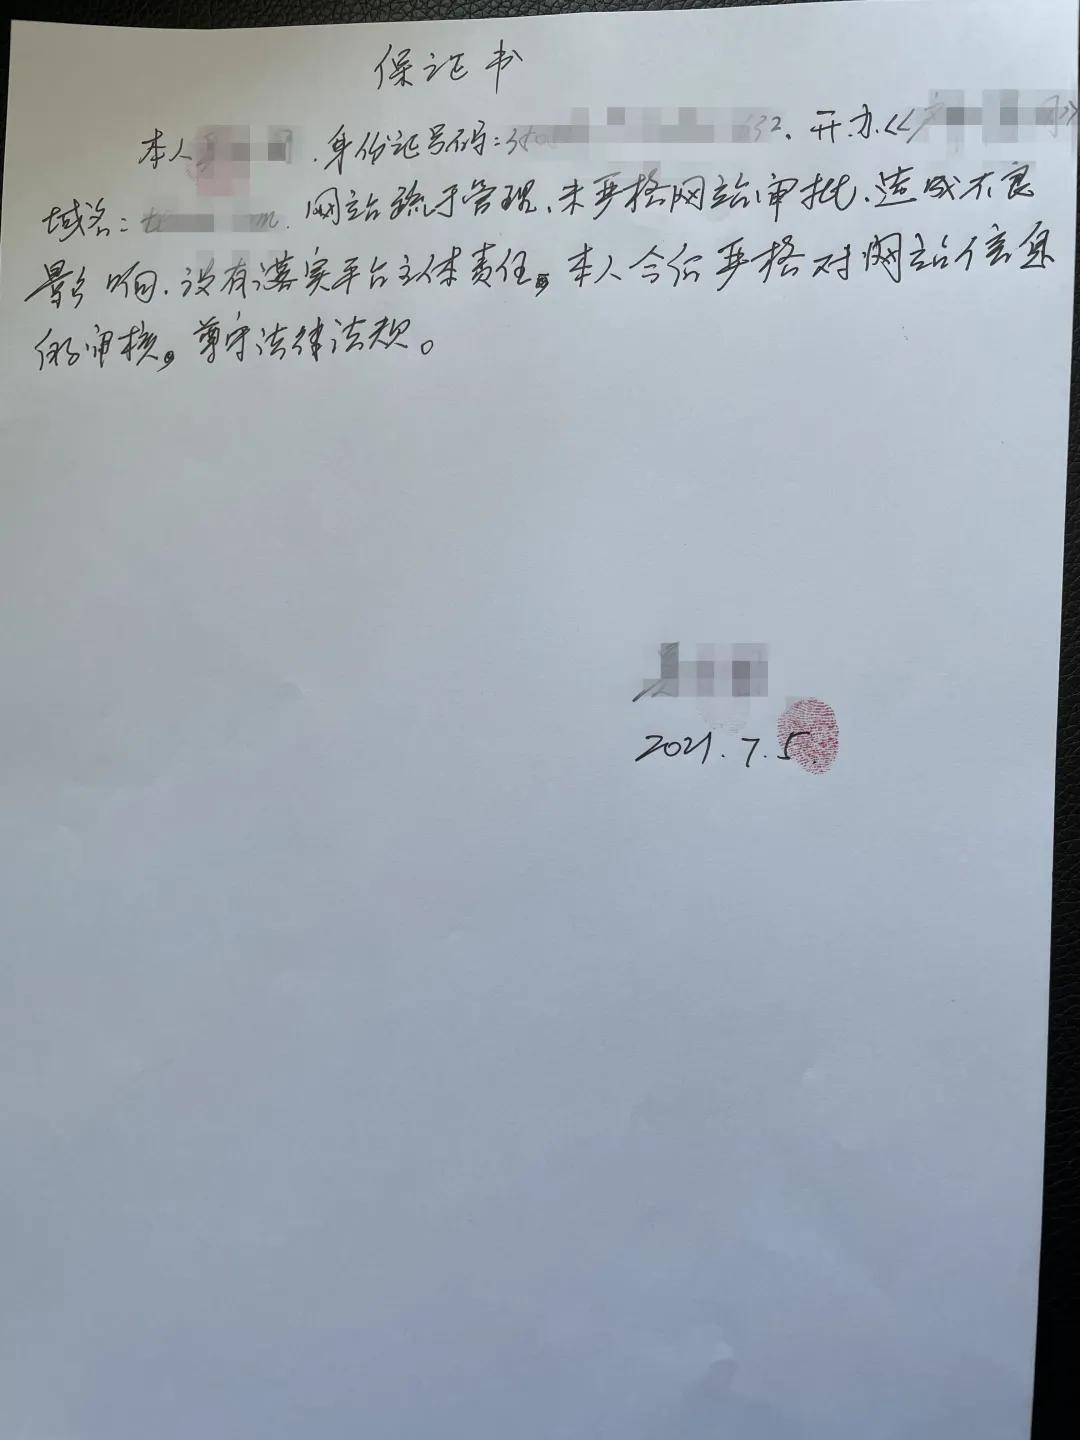 保证书
本人 身份证号码:35 32、开办《 》
域名: m. 网站疏于管理、未严格网站审批、造成不良
影响、没有落实平台主体责任。本人今后严格对网站信息
的审核。尊守法律法规。
2021.7.5.